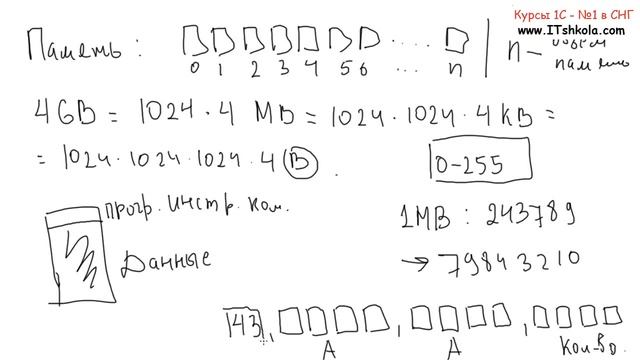 Курсы 1С - №1 в СНГ
www.ITshkola.com
Память :
0 1 2 3 4 5 6 ... n
n - объем памяти
4GB = 1024 · 4 MB = 1024 · 1024 · 4 KB =
= 1024 · 1024 · 1024 · 4 B
0-255
прогр. инстр. ком.
Данные
1MB : 243789
→ 79843210
143 , , ,
A A Кол-во